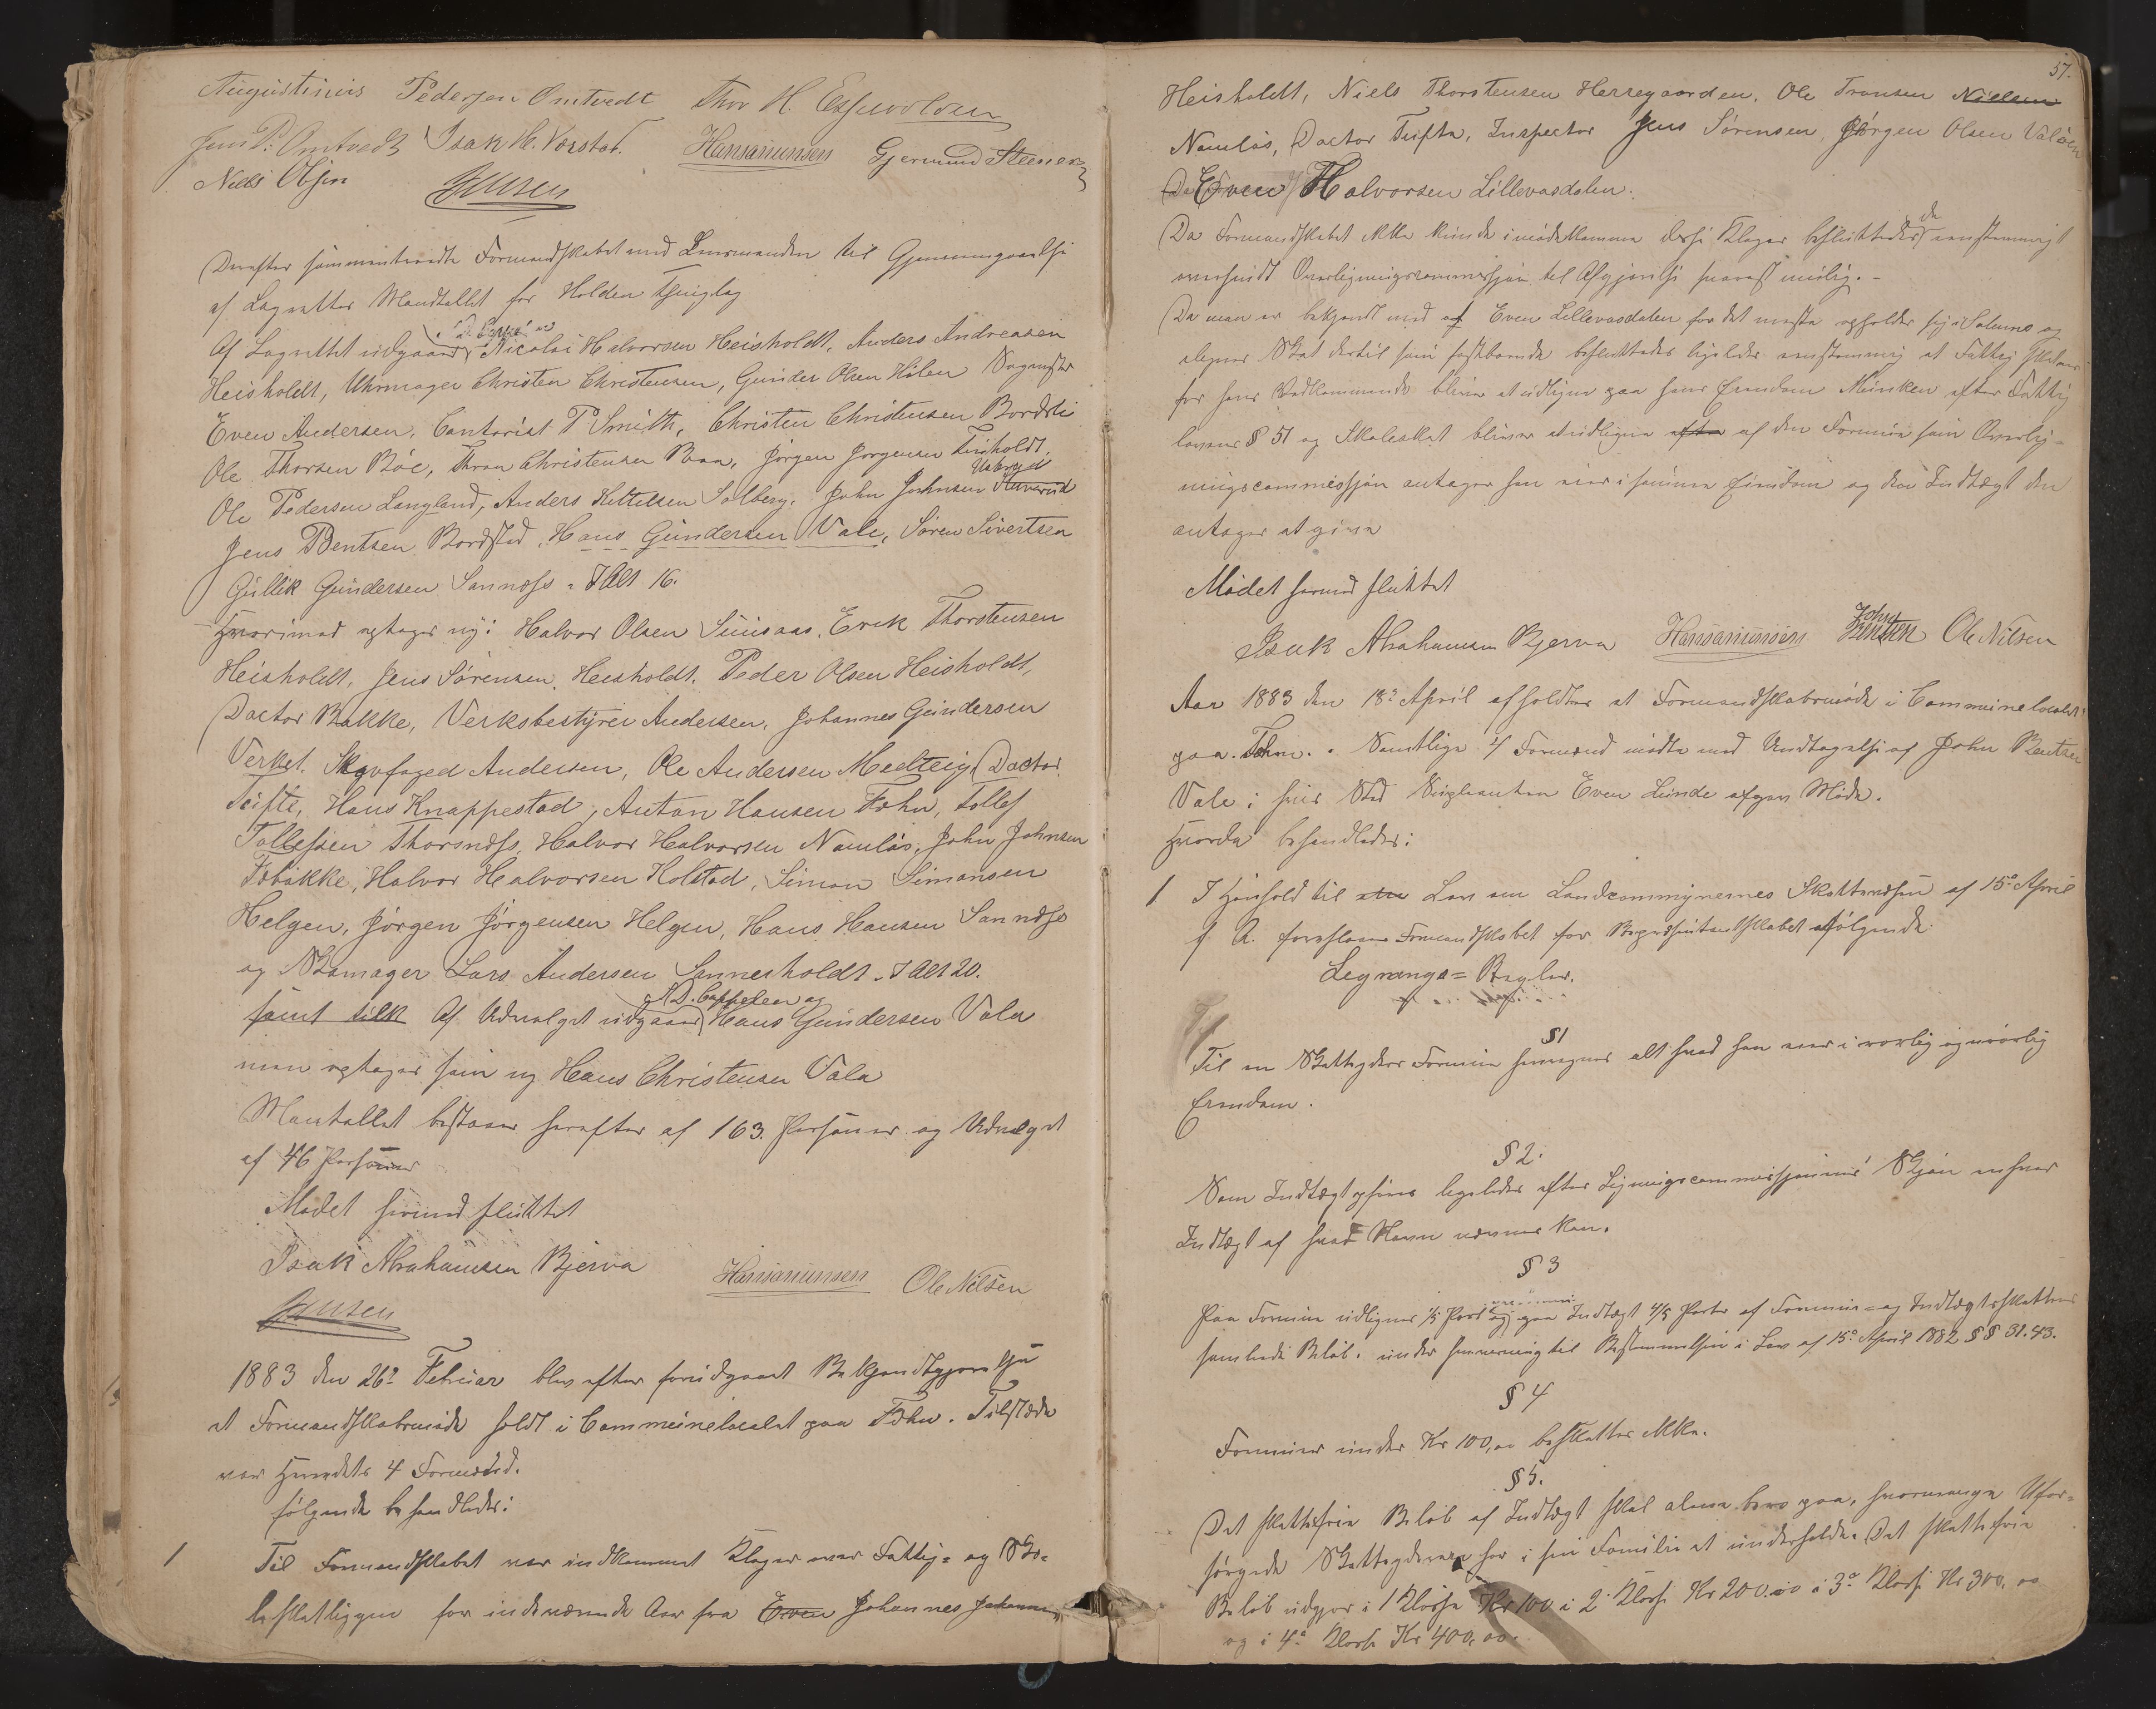 Augustinius Pedersen Omtvedt Thor H.
Jens P. Omtvedt Isak H. Hansamunsen Gjermund
Niels Olsen Jensen
Derefter sammentraadte Formandskabet med Lensmanden til Gjennemgaaelse
af Lagrettes Mandtallet for Holden Thinglag
Af Lagrettet udgaaer Nicolai Halvorsen Heisholdt, Anders Andreasen
Heisholdt, Uhrmager Christen Christensen, Gunder Olsen Holen
Even Andersen, Contorist P. Smith, Christen Christensen Bordsti
Ole Thorsen Böe, Thron Christensen Jörgen Jörgensen
Ole Pedersen Langland, Anders Kittilsen Solberg, John Johnsen
Jens Bentsen Bordsted, Hans Gundersen Vale, Sören Sivertsen
Gullik Gundersen Sannæss. I Alt 16.
Hvorimod optages ny: Halvor Olsen Erik Thorstensen
Heisholdt, Jens Sörensen Heisholdt, Peder Olsen Heisholdt,
Doctor Bakke, Verksbestyrer Andersen, Johannes Gundersen
Verket, Skovfoged Andersen, Ole Andersen Doctor
Tufte, Hans Knappestad, Anton Hansen Fæhn, Tollef
Tollefsen Thorsnæss, Halvor Halvorsen Namlös, John Johnsen
Halvor Halvorsen Holstad, Simon Simonsen
Helgen, Jörgen Jörgensen Helgen, Hans Hansen Sannæss
og Skomager Lars Andersen Sannesholdt. I Alt 20.
samt tilk Af Udvalget udgaaer D. Cappelen og Hans Gundersen Vale
men optages som ny Hans Christensen Vale
Mantallet bestaaer herefter af 163 Personer og Udvalget
af 46 Personer
Mödet hermed sluttet
Isak Abrahamsen Bjerva Hansamunsen Ole Nilsen
Jensen
1883 den 26de Februar blev efter forudgaaet Bekjendtgjörelse
et Formandskabsmöde holdt i Communelocalet paa Fæhn. Tilstede
var Herredets 4 Formænd.
fölgende behandledes:
1 Til Formandskabet var indkommet Klager over Fattig= og Sko=
leskatliggen for indeværende Aar fra Even Johannes
57.
Heisholdt, Niels Thorstensen Herregaarden, Ole Tronsen Nielsen
Namlös, Doctor Tufte, Inspector Jens Sörensen, Jörgen Olsen Valöen
Even Halvorsen Lillevasdalen.
Da Formandskabet ikke kunde imödekomme disse Klager besluttedes de eenstemmigt
oversendt Overligningscommissjon til Afgjörelse snarest mulig. -
Da man er bekjendt med at Even Lillevasdalen for det meste opholder sig i Solum og
skatter Skat dertil som fastboende besluttedes ligeledes eenstemmig at Fattig Skatten
for hans Vedkommende bliver at udligne paa hans Eiendom Munken efter Fattig
lovens § 51 og Skoleskat bliver at udligne efter af den Formue som Overlig-
ningscommissjon antager han eier i samme Eiendom og den Indtægt den
antages at give
Mödet hermed sluttet
Isak Abrahamsen Bjerva Hansamunsen John Bentsen Ole Nilsen
Aar 1883 den 18de April afholdtes et Formandskabsmöde i Communelocalet
paa Fæhn. Samtlige 4 Formænd mödte med Undtagelse af John Bentsen
Vale i hvis Sted Supleanten Even Lunde afgav Möde.
Hvorda behandledes:
1 I Henhold til Lov om Landcommynernes Skattevæsen af 15de April
f. A. foreslaar Formandskabet for Repræsentantskabet fölgende
Lignings= Regler.
§1
Til en Skatteyders Formue henregnes alt hvad han eier i rörlig og urörlig
Eiendom.
§ 2.
Som Indtægt opföres ligeledes efter Ligningscommissjonens Skjön enhver
Indtægt af hvad Navn nævnes kan.
§ 3
Paa Formue udlignes 1/5 Part og paa Indtægt 4/5 Parter af Formue= og Indtægtsskattens
samlede Belöb, under Henviisning til Bestemmelsen i Lov af 15de April 1882 §§ 31.43.
§ 4
Formuer under Kr 100,00 beskattes ikke.
§ 5.
Det skattefrie Belöb af Indtægt skal alene bero paa, hvormange Ufor=
sörgede Skatteyderen har i sin Familie at underholde. Det skattefrie
Belöb udgjör i 1 Klasse Kr 100 i 2. Klasse Kr 200.00 i 3de Klasse Kr 300,00
og i 4de Klasse Kr 400,00.